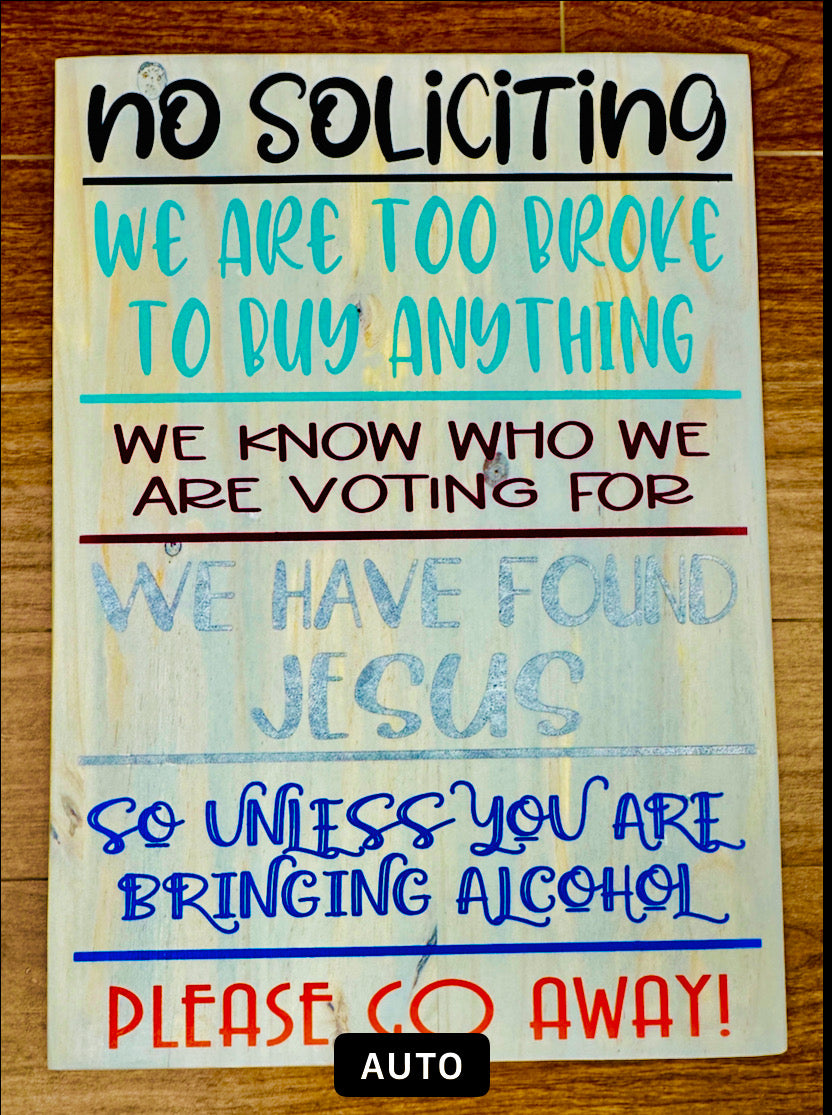 no SOLiCiTing
WE ARE TOO BROKE
TO BUY ANYTHING
WE KNOW WHO WE
ARE VOTING FOR
WE HAVE FOUND
JESUS
SO UNLESS YOU ARE
BRINGING ALCOHOL
PLEASE GO AWAY!
AUTO